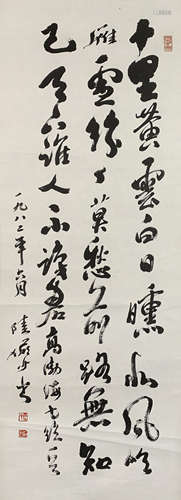 十里黄雲白日曛北風吹
雁雪紛々莫愁前路無知
己天下誰人不識君高渤海七絕一首
一九八二年六月陸儼少書